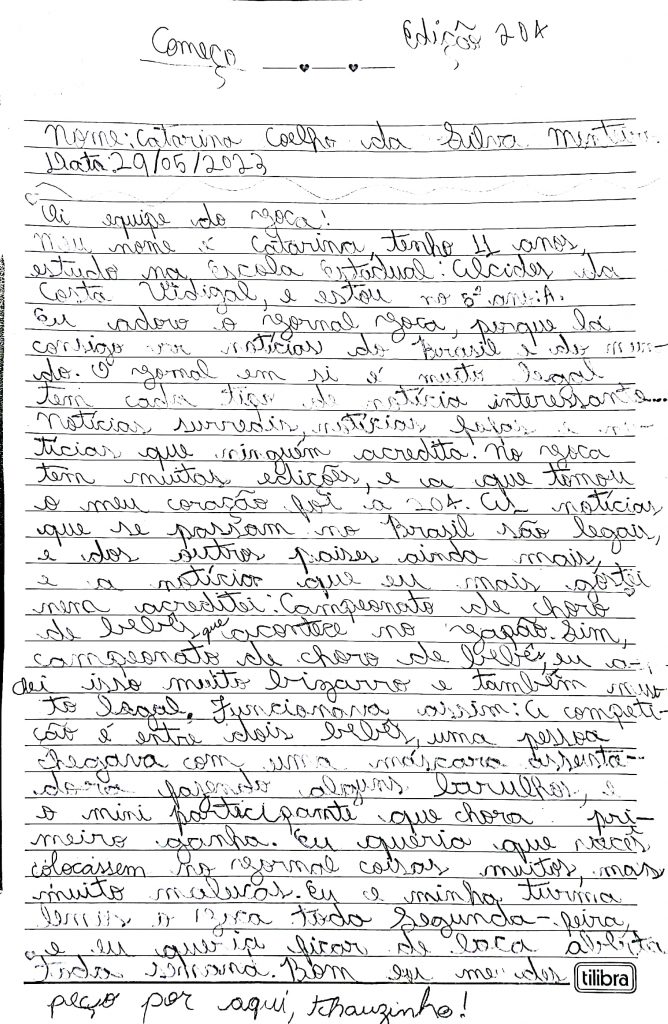 Começo
Edição 204
Nome: Catarina Coelho da Silva
Data: 29/05/2023
Oi equipe do Joca!
Meu nome é Catarina, tenho 11 anos,
estudo na Escola Estadual: Alcides da
Costa Vidigal, e estou no 5º ano: A.
Eu adoro o jornal Joca, porque lá
consigo ver notícias do Brasil e do mun-
do. O jornal em si é muito legal
tem cada tipo de notícia interessante...
Notícias notícias e no-
tícias que ninguém acredita. No Joca
tem muitas edições, e a que tomou
o meu coração foi a 204. As notícias
que se passam no Brasil são legais,
e dos outros paises ainda mais,
e a notícia que eu mais gostei
nem acreditei: Campeonato de choro
de bebês, que acontece no Japão. Sim,
campeonato de choro de bebês, eu a-
dei isso muito bizarro e também mui-
to legal. Funcionava assim: A competi-
ção é entre dois bebês, uma pessoa
chegava com uma máscara assusta-
dora fazendo alguns barulhos, e
o mini participante que chora pri-
meiro ganha. Eu queria que vocês
colocassem no jornal coisas muitos, mas
muito malucas. Eu e minha turma
lemos o Joca toda Segunda-feira,
e eu queria ficar de boca aberta
toda semana. Bom eu me des
peço por aqui, tchauzinho!
tilibra